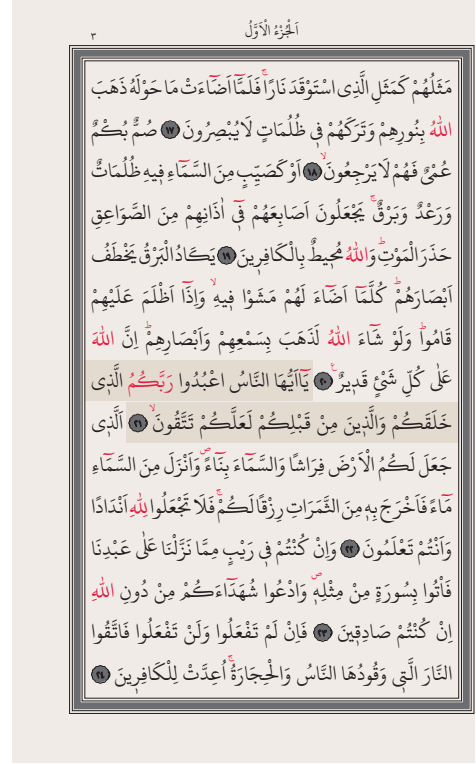 اَلْجُزْءُ الْاَوَّلُ
٣
مَثَلُهُمْ كَمَثَلِ الَّذِى اسْتَوْقَدَ نَارًاۚ فَلَمَّٓا اَضَٓاءَتْ مَا حَوْلَهُ ذَهَبَ
اللّٰهُ بِنُورِهِمْ وَتَرَكَهُمْ فٖى ظُلُمَاتٍ لَا يُبْصِرُونَ ﴿١٧﴾ صُمٌّ بُكْمٌ
عُمْىٌ فَهُمْ لَا يَرْجِعُونَۙ ﴿١٨﴾ اَوْ كَصَيِّبٍ مِنَ السَّمَٓاءِ فٖيهِ ظُلُمَاتٌ
وَرَعْدٌ وَبَرْقٌۚ يَجْعَلُونَ اَصَابِعَهُمْ فٖٓى اٰذَانِهِمْ مِنَ الصَّوَاعِقِ
حَذَرَ الْمَوْتِؕ وَاللّٰهُ مُحٖيطٌ بِالْكَافِرٖينَ ﴿١٩﴾ يَكَادُ الْبَرْقُ يَخْطَفُ
اَبْصَارَهُمْؕ كُلَّمَٓا اَضَٓاءَ لَهُمْ مَشَوْا فٖيهِۙ وَاِذَٓا اَظْلَمَ عَلَيْهِمْ
قَامُواؕ وَلَوْ شَٓاءَ اللّٰهُ لَذَهَبَ بِسَمْعِهِمْ وَاَبْصَارِهِمْؕ اِنَّ اللّٰهَ
عَلٰى كُلِّ شَىْءٍ قَدٖيرٌ۟ ﴿٢٠﴾ يَٓا اَيُّهَا النَّاسُ اعْبُدُوا رَبَّكُمُ الَّذٖى
خَلَقَكُمْ وَالَّذٖينَ مِنْ قَبْلِكُمْ لَعَلَّكُمْ تَتَّقُونَۙ ﴿٢١﴾ اَلَّذٖى
جَعَلَ لَكُمُ الْاَرْضَ فِرَاشًا وَالسَّمَٓاءَ بِنَٓاءًࣕ وَاَنْزَلَ مِنَ السَّمَٓاءِ
مَٓاءً فَاَخْرَجَ بِهٖ مِنَ الثَّمَرَاتِ رِزْقًا لَكُمْۚ فَلَا تَجْعَلُوا لِلّٰهِ اَنْدَادًا
وَاَنْتُمْ تَعْلَمُونَ ﴿٢٢﴾ وَاِنْ كُنْتُمْ فٖى رَيْبٍ مِمَّا نَزَّلْنَا عَلٰى عَبْدِنَا
فَاْتُوا بِسُورَةٍ مِنْ مِثْلِهٖࣕ وَادْعُوا شُهَدَٓاءَكُمْ مِنْ دُونِ اللّٰهِ
اِنْ كُنْتُمْ صَادِقٖينَ ﴿٢٣﴾ فَاِنْ لَمْ تَفْعَلُوا وَلَنْ تَفْعَلُوا فَاتَّقُوا
النَّارَ الَّتٖى وَقُودُهَا النَّاسُ وَالْحِجَارَةُۚ اُعِدَّتْ لِلْكَافِرٖينَ ﴿٢٤﴾